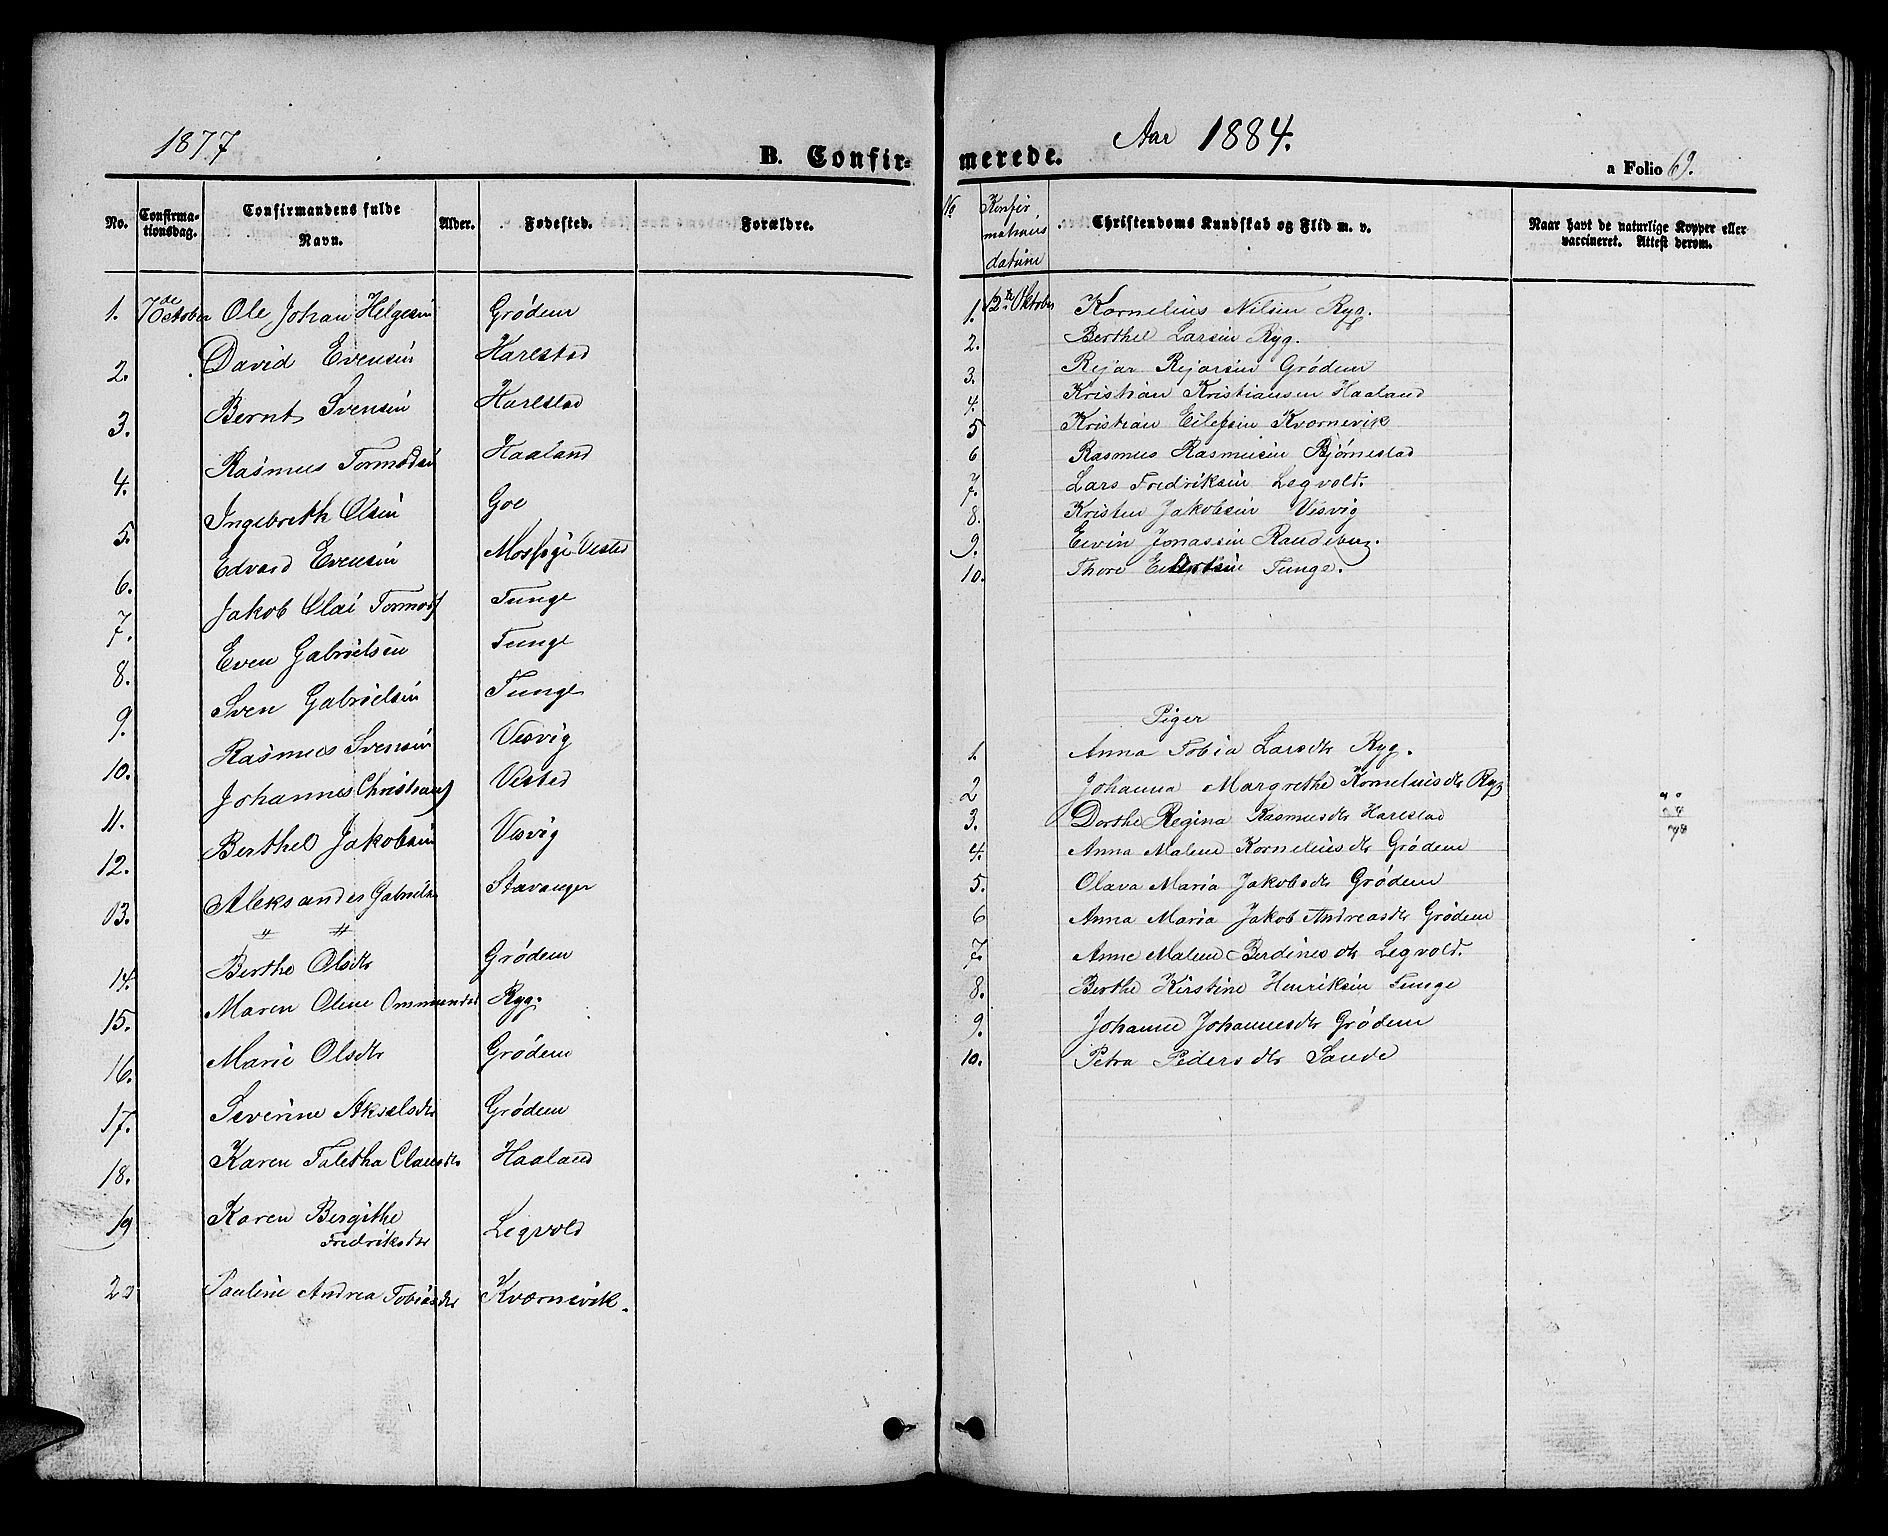 1877
B. Confir-
No.
Confirma-
tionsdag.
Confirmandens fulde
Navn.
Alder.
Fødested.
Forældre.
1. 7de October Ole Johan Helgesen Grødem
2. David Evensen Harestad
3. Bernt Svensen Harestad
4. Rasmus Tormodsen Haaland
5. Ingebreth Olsen Goe
6. Edvard Evensen Vested
7. Jakob Olai Tormods Tunge
8. Even Gabrielsen Tunge
9. Sven Gabrielsen Tunge
10. Rasmus Svensen Visvig
11. Johannes Christians Vested
12. Berthel Jakobsen Visvig
13. Aleksander Gabriels Stavanger
" "
14. Berthe Olsdtr Grødem
15. Maren Oline Ommundsd Ryg.
16. Marie Olsdtr Grødem
17. Severine Akselsdtr Grødem
18. Karen Taletha Clausdtr Haaland
19 Karen Bergithe
Fredriksdtr Legvold
20 Pauline Andrea Tobiasdtr Kværnevik.
Aar 1884.
merede.
a Folio 69.
No
Konfir
mations
datum
Christendoms Kundskab og Flid m. v.
Naar havt de naturlige Kopper eller
vaccineret. Attest derom.
1. 12te Oktober Kornelius Nilsen Ryg.
2. Berthel Larsen Ryg.
3. Rejar Rejarsen Grødem
4. Kristian Kristiansen Haaland
5 Kristian Eilefsen Kvornevik
6 Rasmus Rasmusen Bjørnestad
7. Lars Fredriksen Legvold.
8. Kristen Jakobsen Visvig
9. Eivin Jonassen Randeberg.
10. Thore Tunge.
Piger
1. Anna Tobia Larsdtr Ryg.
2 Johanna Margrethe Korneliusdtr Ryg
3. Dorthe Regina Rasmusdtr Harestad
4. Anna Malene Korneliusdtr Grødem
5. Olava Maria Jakobsdtr Grødem
6 Anna Maria Jakob Andreasdtr Grødem
7. Anne Malene Berdinesdtr Legvold.
8. Berthe Kirstine Henriksen Tunge
9. Johanne Johannesdtr Grødem
10. Petra Pedersdtr Sande